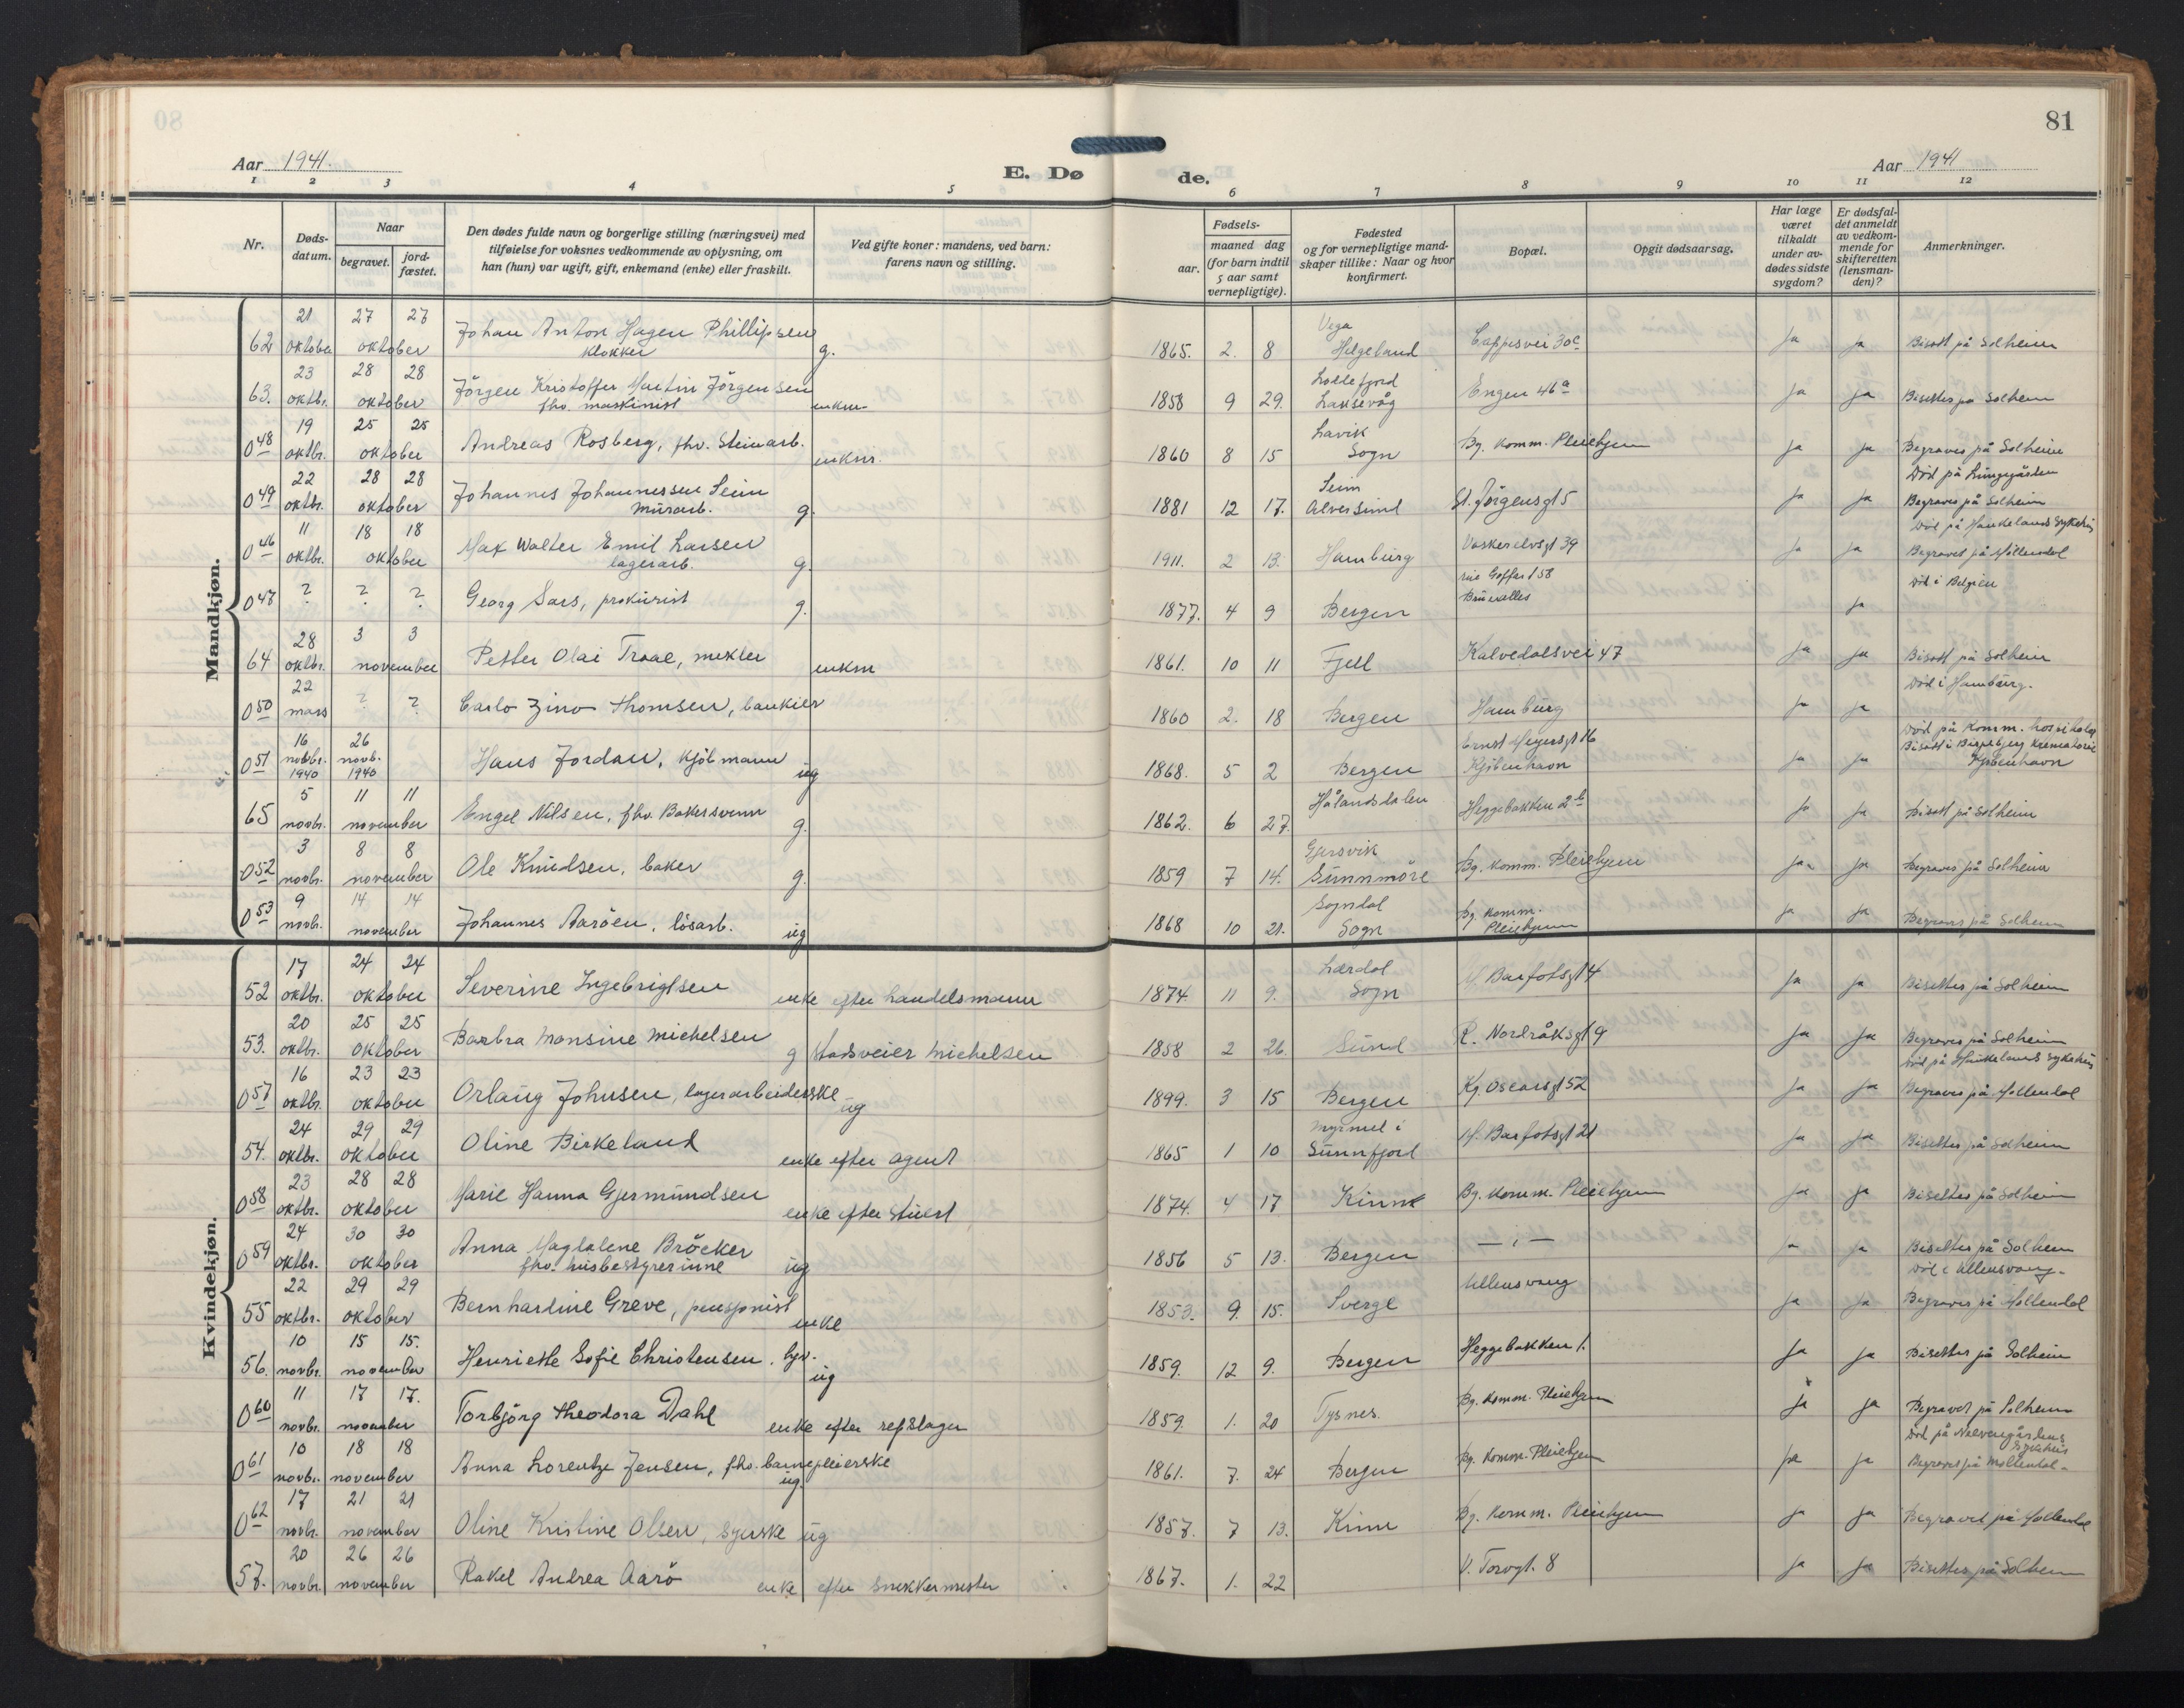 81
Aar 1941.
E. Dø
de.
Aar 1941
1 2 3 4 5 6 7 8 9 10 11 12
Nr.
Døds-
datum.
Naar
begravet.
jord-
fæstet.
Den dødes fulde navn og borgerlige stilling (næringsvei) med
tilføielse for voksnes vedkommende av oplysning, om
han (hun) var ugift, gift, enkemand (enke) eller fraskilt.
Ved gifte koner: mandens, ved barn:
farens navn og stilling.
Fødsels-
aar.
maaned dag
(for barn indtil
5 aar samt
vernepligtige).
Fødested
og for vernepligtige mand-
skaper tillike: Naar og hvor
konfirmert.
Bopæl.
Opgit dødsaarsag.
Har læge
været
tilkaldt
under av-
dødes sidste
sygdom?
Er dødsfal-
det anmeldt
av vedkom-
mende for
skifteretten
(lensman-
den)?
Anmerkninger.
Mandkjøn.
62 21 oktober 27 27 oktober Johan Anton Hagen Phillipsen klokker g. 1865. 2. 8 Vega Helgeland 30c ja ja Bisatt på Solheim
63. 23 oktbr. 28 28 oktober Jörgen Kristoffer Martin Jörgensen fhv. maskinist enkm. 1858 9 29. Laksevåg Engen 46a ja ja Bisettes på Solheim
048 19 oktbr. 25 25 oktober Andreas Rosberg, fhv. Steinarb. enkm. 1860 8 15 Lavik Sogn Bg. komm. Pleiehjem ja ja Begraves på Solheim
049 22 oktbr. 28 28 oktober Johannes Johannessen Seim murarb. g. 1881 12 17. Seim Alversund St. Jörgensgt 5 ja ja Död på Lungegården Begraves på Solheim
046 11 oktbr. 18 18 oktober Max Walter Emil Larsen lagerarb. g. 1911. 2 13. Hamburg Vaskerelvsgt 39 ja ja Död på Haukelands Sykehus Begravet på Möllendal
047 ? ? ? Georg Sars, prokurist g. 1877. 4 9 Bergen rue Goffart 58 Bruxelles ja Död i Belgien
64 28 oktbr. 3 3 november Petter Olai Traae, mekler enkm 1861. 10 11 Fjell Kalvedalsvei 47 ja ja Bisatt på Solheim
050 22 mars ? ? Carlo Zino Thomsen, bankier 1860 2. 18 Bergen Hamburg ja ja Död i Hamburg.
051 16 novbr. 1940 26 novb. 1940 Hans Jordan, kjöbmann ug 1868. 5 2 Bergen Ernst Meyersgt 16 Kjöbenhavn ja ja Död på Komm. hospitalet Bisatt i Bispebjerg Krematorie Kjöbenhavn
65 5 novbr. 11 11 november Engel Nilsen, fhv. Bakersvenn g. 1862. 6 27. Hålandsdalen Heggebakken 2b ja ja Bisatt på Solheim
052 3 novbr. 8 8 november Ole Knudsen, baker g. 1859 7 14. Gjersvik Sunnmöre Bg. komm. Pleiehjem ja ja Begraves på Solheim
053 9 novbr. 14 14 november Johannes Aaröen, lösarb. ug 1868 10 21. Sogndal Sogn Bg. komm. Pleiehjem ja ja Begraves på Solheim
Kvindekjøn.
52 17 oktbr. 24 24 oktober Severine Ingebrigtsen enke efter handelsmann 1874 11 9. Lærdal Sogn M. Barfotsgt 4 ja ja Bisettes på Solheim
53. 20 oktbr. 25 25 oktober Barbra Monsine Michelsen g stadsveier Michelsen 1858 2 26. Sund R. Nordråksgt 9 ja ja Begraves på Solheim
057 16 oktbr. 23 23 oktober Orlaug Johnsen, lagerarbeiderske ug 1899. 3 15 Bergen Kg. Oscarsgt 52 ja ja Död på Haukelands Sykehus Begraves på Möllendal
54. 24 oktbr. 29 29 oktober Oline Birkeland enke efter agent 1865 1 10 i Sunnfjord M. Barfotsgt 21 ja ja Bisettes på Solheim
058 23 oktbr. 28 28 oktober Marie Hanna Gjermundsen enke efter Stuert 1874. 4 17 Kinn Bg. komm. Pleiehjem ja ja Bisettes på Solheim
059 24 oktbr. 30 30 oktober Anna Magdalene Bröcker fhv. husbestyrerinne ug 1856 5 13. Bergen — " — ja ja Bisettes på Solheim
55 22 oktbr. 29 29 oktober Bernhardine Greve, pensjonist enke 1853. 9. 15. Sverge Ullensvang ja ja Död i Ullensvang. Begraves på Möllendal
56. 10 novbr. 15 15. november Henriette Sofie Christensen. ug 1859. 12 9. Bergen Heggebakken 1. ja ja Bisettes på Solheim
060 11 novbr. 17 17. november Torbjörg Theodora Dahl enke efter repslager 1859. 1. 20 Tysnes. Bg. komm. Pleiehjem ja ja Begravet på Solheim
061 10 novbr. 18 18 november Anna Lorentze Jensen, fhv. barnepleierske ug. 1861. 7. 24 Bergen Bg. komm. Pleiehjem ja ja Död på Neevengårdens Sykehus Begraves på Möllendal.
062 17 novbr. 21 21 november Oline Kristine Olsen, syerske ug 1857. 7 13. Kinn Bg. komm. Pleiehjem ja ja Begravet på Möllendal
57. 20 novbr. 26 26 november Rakel Andrea Aarö enke efter snekkermester 1867. 1. 22 V. Torvgt. 8 ja ja Bisettes på Solheim